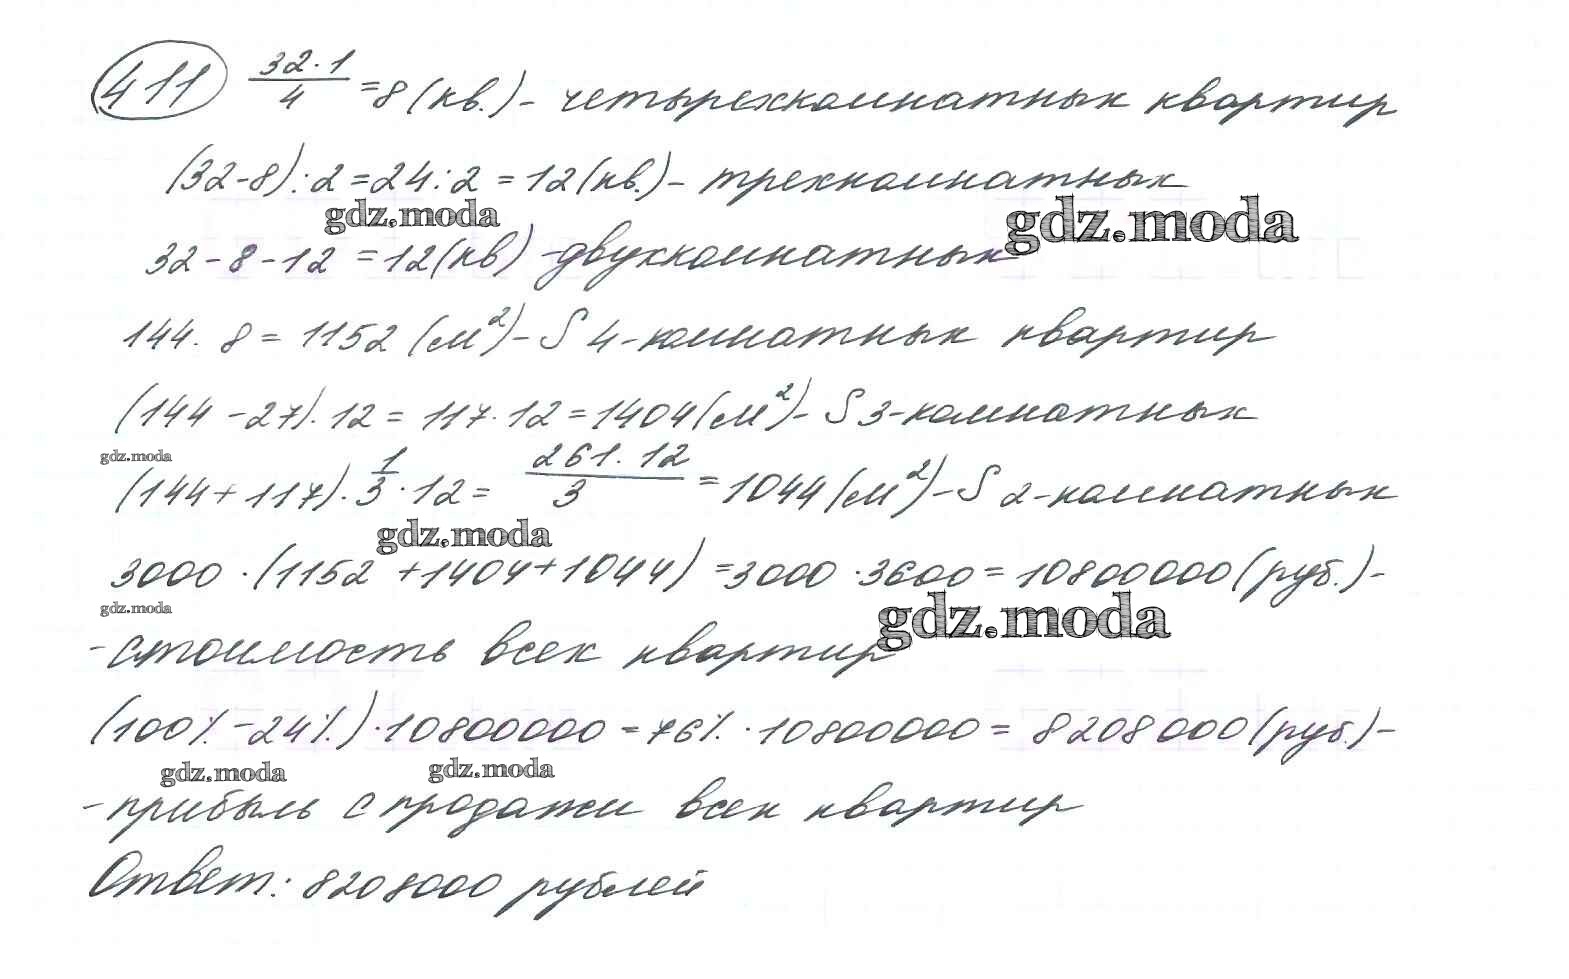 411 32·1/4 = 8 (кв.) - четырехкомнатных квартир
(32-8):2=24:2=12(кв.)- трехкомнатных
gdz.moda gdz.moda
32-8-12=12(кв) -двухкомнатных
144·8=1152 (см²)- S 4-комнатных квартир
(144-27)·12=117·12=1404(см²)- S 3-комнатных
gdz.moda
(144+117)·1/3·12= 261·12/3 =1044(см²)- S 2-комнатных
gdz.moda
3000·(1152+1404+1044)=3000·3600=10800000(руб.)-
gdz.moda gdz.moda
-стоимость всех квартир
(100%-24%)·10800000=76%·10800000=8208000(руб.)-
gdz.moda gdz.moda
-прибыль с продажи всех квартир
Ответ: 8208000 рублей